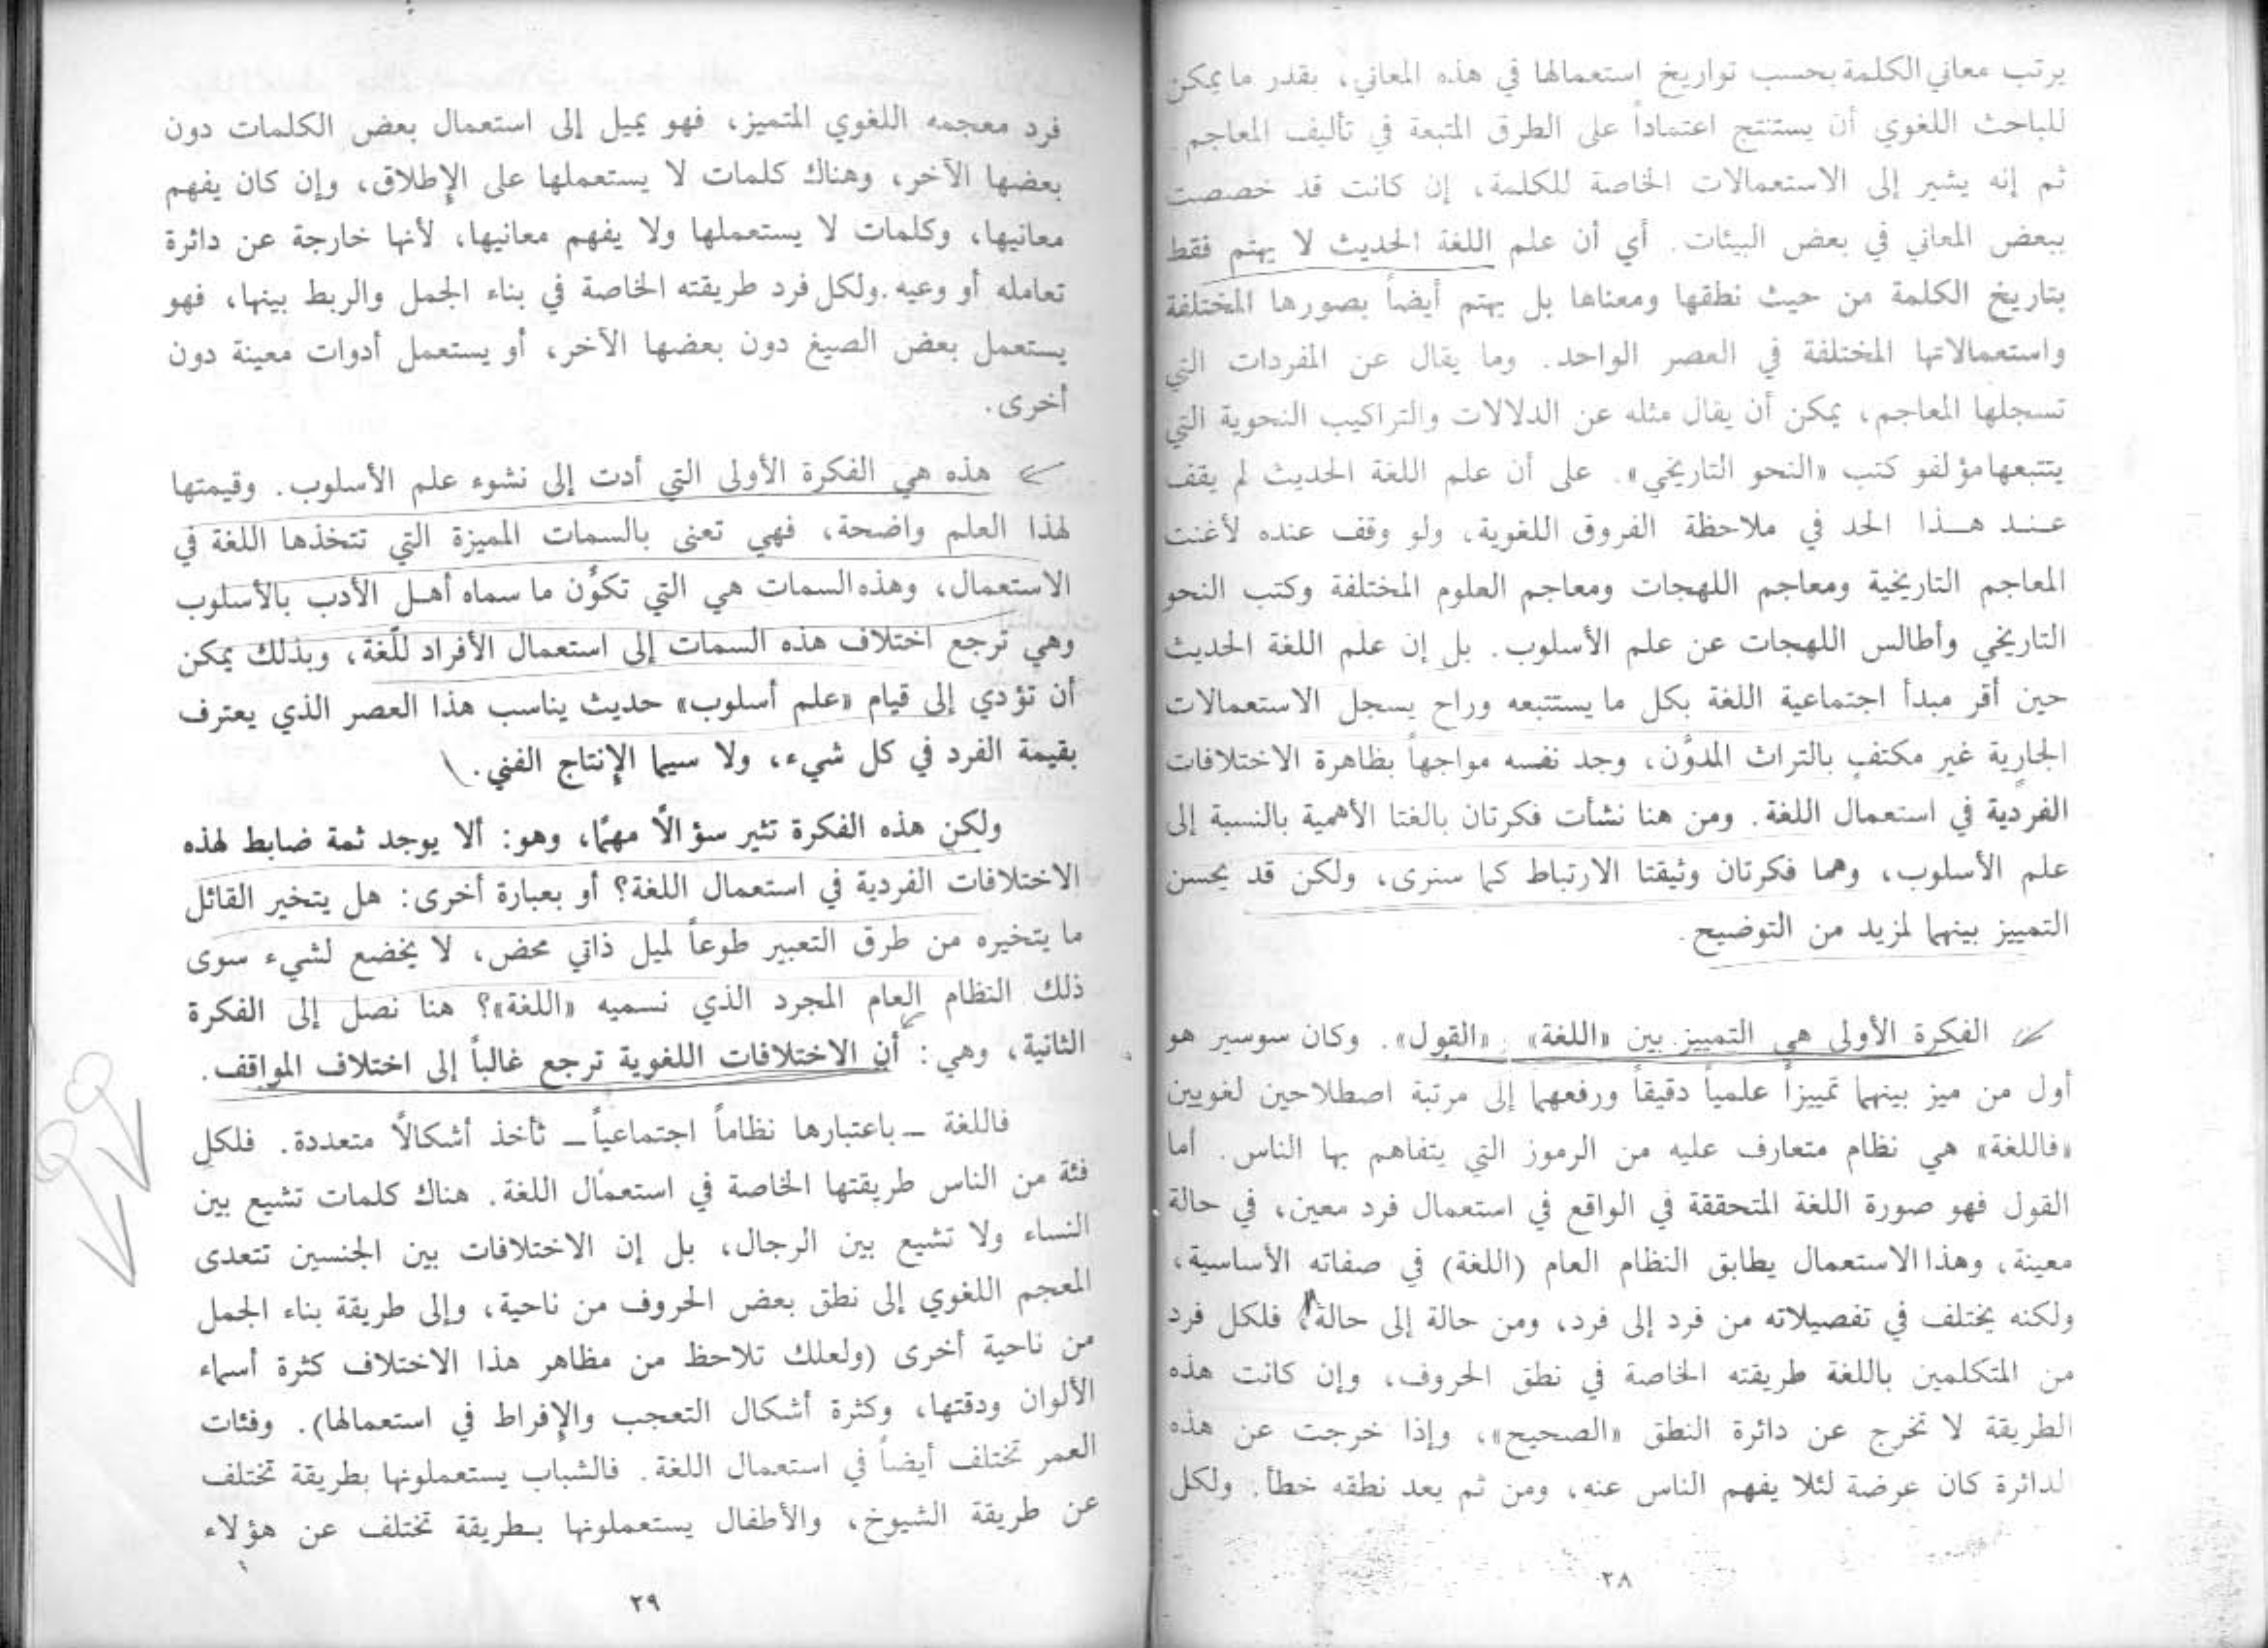 يرتب معاني الكلمة بحسب تواريخ استعمالها في هذه المعاني، بقدر ما يمكن
للباحث اللغوي أن يستنتج اعتماداً على الطرق المتبعة في تأليف المعاجم.
ثم إنه يشير إلى الاستعمالات الخاصة للكلمة، إن كانت قد خصصت
ببعض المعاني في بعض البيئات. أي أن علم اللغة الحديث لا يهتم فقط
بتاريخ الكلمة من حيث نطقها ومعناها بل يهتم أيضاً بصورها المختلفة
واستعمالاتها المختلفة في العصر الواحد. وما يقال عن المفردات التي
تسجلها المعاجم، يمكن أن يقال مثله عن الدلالات والتراكيب النحوية التي
يتتبعها مؤلفو كتب «النحو التاريخي». على أن علم اللغة الحديث لم يقف
عند هذا الحد في ملاحظة الفروق اللغوية، ولو وقف عنده لأغنت
المعاجم التاريخية ومعاجم اللهجات ومعاجم العلوم المختلفة وكتب النحو
التاريخي وأطالس اللهجات عن علم الأسلوب. بل إن علم اللغة الحديث
حين أقر مبدأ اجتماعية اللغة بكل ما يستتبعه وراح يسجل الاستعمالات
الجارية غير مكتفٍ بالتراث المدوَّن، وجد نفسه مواجهاً بظاهرة الاختلافات
الفردية في استعمال اللغة. ومن هنا نشأت فكرتان بالغتا الأهمية بالنسبة إلى
علم الأسلوب، وهما فكرتان وثيقتا الارتباط كما سنرى، ولكن قد يحسن
التمييز بينهما لمزيد من التوضيح.
الفكرة الأولى هي التمييز بين «اللغة» و«القول». وكان سوسير هو
أول من ميز بينهما تمييزاً علمياً دقيقاً ورفعهما إلى مرتبة اصطلاحين لغويين
«فاللغة» هي نظام متعارف عليه من الرموز التي يتفاهم بها الناس. أما
القول فهو صورة اللغة المتحققة في الواقع في استعمال فرد معين، في حالة
معينة، وهذا الاستعمال يطابق النظام العام (اللغة) في صفاته الأساسية،
ولكنه يختلف في تفصيلاته من فرد إلى فرد، ومن حالة إلى حالة، فلكل فرد
من المتكلمين باللغة طريقته الخاصة في نطق الحروف، وإن كانت هذه
الطريقة لا تخرج عن دائرة النطق «الصحيح»، وإذا خرجت عن هذه
الدائرة كان عرضة لئلا يفهم الناس عنه، ومن ثم يعد نطقه خطأ. ولكل
٢٨
فرد معجمه اللغوي المتميز، فهو يميل إلى استعمال بعض الكلمات دون
بعضها الآخر، وهناك كلمات لا يستعملها على الإطلاق، وإن كان يفهم
معانيها، وكلمات لا يستعملها ولا يفهم معانيها، لأنها خارجة عن دائرة
تعامله أو وعيه. ولكل فرد طريقته الخاصة في بناء الجمل والربط بينها، فهو
يستعمل بعض الصيغ دون بعضها الآخر، أو يستعمل أدوات معينة دون
أخرى.
هذه هي الفكرة الأولى التي أدت إلى نشوء علم الأسلوب. وقيمتها
لهذا العلم واضحة، فهي تعنى بالسمات المميزة التي تتخذها اللغة في
الاستعمال، وهذه السمات هي التي تكوُّن ما سماه أهل الأدب بالأسلوب
وهي ترجع اختلاف هذه السمات إلى استعمال الأفراد للّغة، وبذلك يمكن
أن تؤدي إلى قيام «علم أسلوب» حديث يناسب هذا العصر الذي يعترف
بقيمة الفرد في كل شيء، ولا سيما الإنتاج الفني.
ولكن هذه الفكرة تثير سؤالًا مهمًا، وهو: ألا يوجد ثمة ضابط لهذه
الاختلافات الفردية في استعمال اللغة؟ أو بعبارة أخرى: هل يتخير القائل
ما يتخيره من طرق التعبير طوعاً لميل ذاتي محض، لا يخضع لشيء سوى
ذلك النظام العام المجرد الذي نسميه «اللغة»؟ هنا نصل إلى الفكرة
الثانية، وهي: أن الاختلافات اللغوية ترجع غالباً إلى اختلاف المواقف.
فاللغة ــ باعتبارها نظاماً اجتماعياً ــ تأخذ أشكالًا متعددة. فلكل
فئة من الناس طريقتها الخاصة في استعمال اللغة. هناك كلمات تشيع بين
النساء ولا تشيع بين الرجال، بل إن الاختلافات بين الجنسين تتعدى
المعجم اللغوي إلى نطق بعض الحروف من ناحية، وإلى طريقة بناء الجمل
من ناحية أخرى (ولعلك تلاحظ من مظاهر هذا الاختلاف كثرة أسماء
الألوان ودقتها، وكثرة أشكال التعجب والإفراط في استعمالها). وفئات
العمر تختلف أيضاً في استعمال اللغة. فالشباب يستعملونها بطريقة تختلف
عن طريقة الشيوخ، والأطفال يستعملونها بطريقة تختلف عن هؤلاء
٢٩